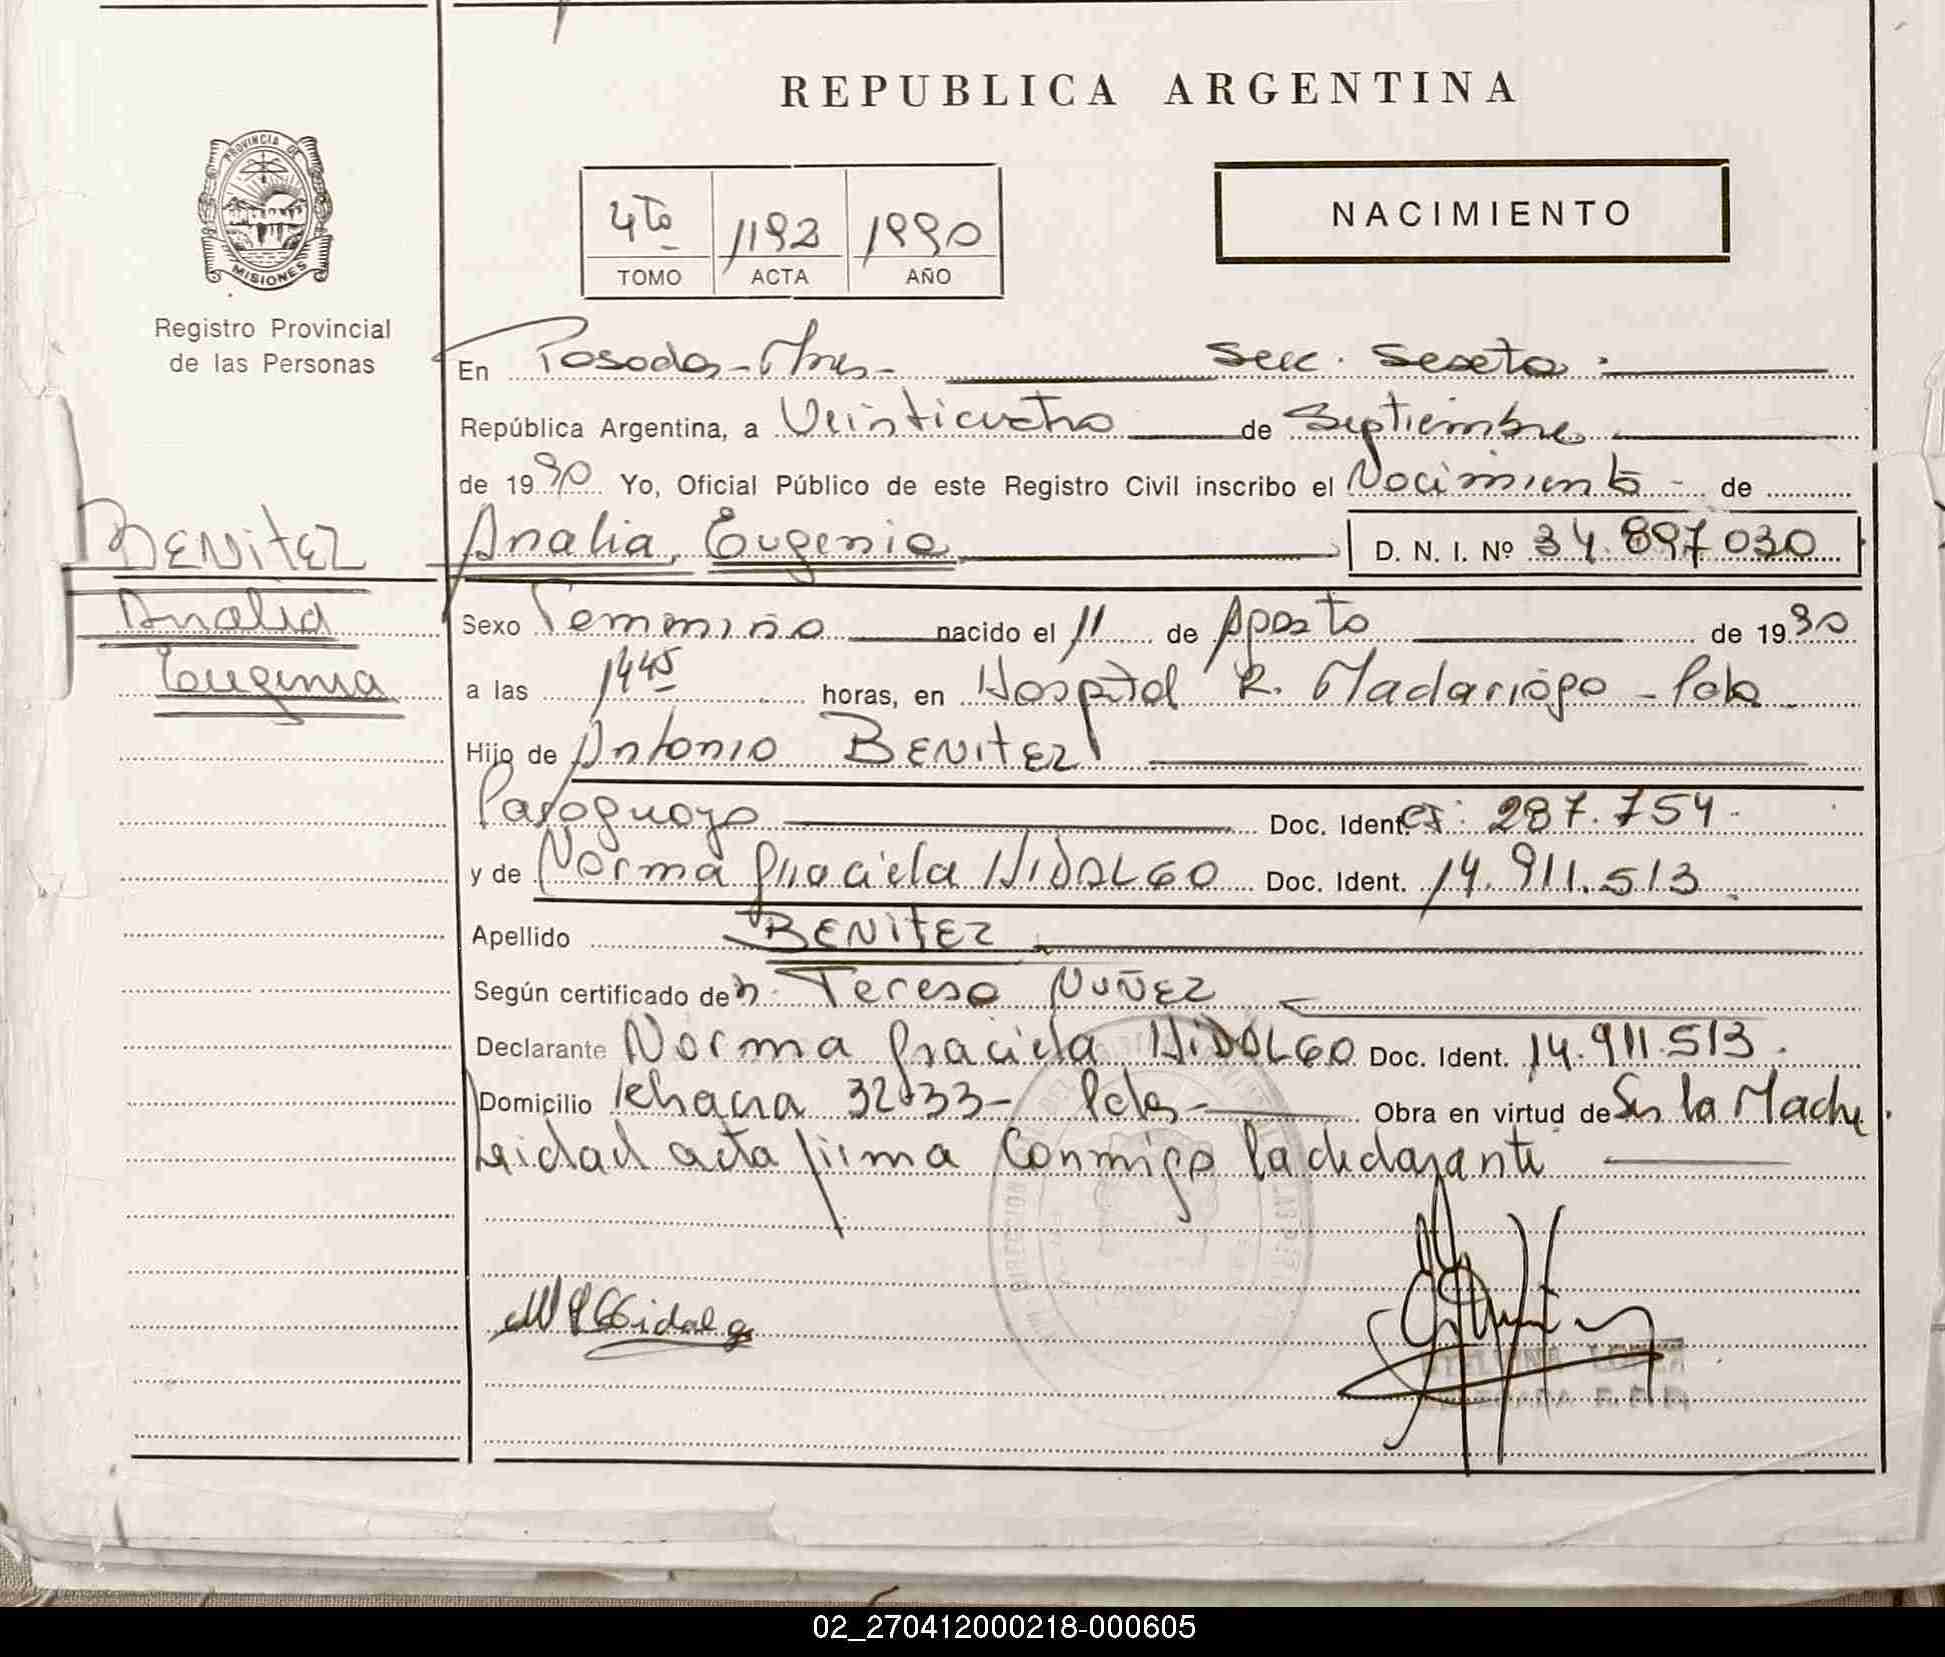 REPUBLICA ARGENTINA
PROVINCIA DE
MISIONES
Registro Provincial
de las Personas
4to 1192 1990
TOMO ACTA AÑO
NACIMIENTO
En Posadas - Mnes - Secc. Sexta
República Argentina, a Veinticuatro de Septiembre
de 1990 Yo, Oficial Público de este Registro Civil inscribo el Nacimiento de
BENITEZ
Analia
Eugenia
Analia, Eugenia D. N. I. Nº 34.897030
Sexo Femenino nacido el 11 de Agosto de 1990
a las 1445 horas, en Hospital R. Madariaga - Pdas
Hijo de Antonio BENITEZ
Paraguayo Doc. Ident. CI: 287.754 -
y de Norma Graciela HIDALGO Doc. Ident. 14.911.513
Apellido BENITEZ
Según certificado de Teresa NUÑEZ
Declarante Norma Graciela HIDALGO Doc. Ident. 14.911.513.
Domicilio - Pdas - Obra en virtud de Ser la Madre.
Leida el acta firma conmigo la declarante
02_270412000218-000605